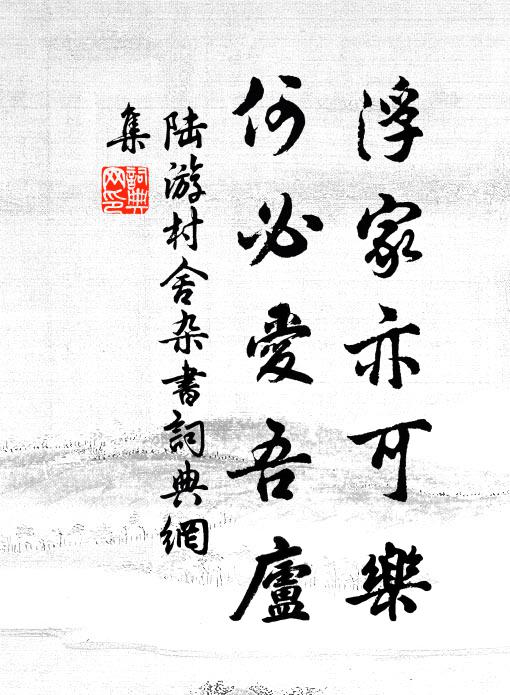 浮家亦可樂
何必愛吾廬
陆游村舍杂書詞典網
集
詞典
网印